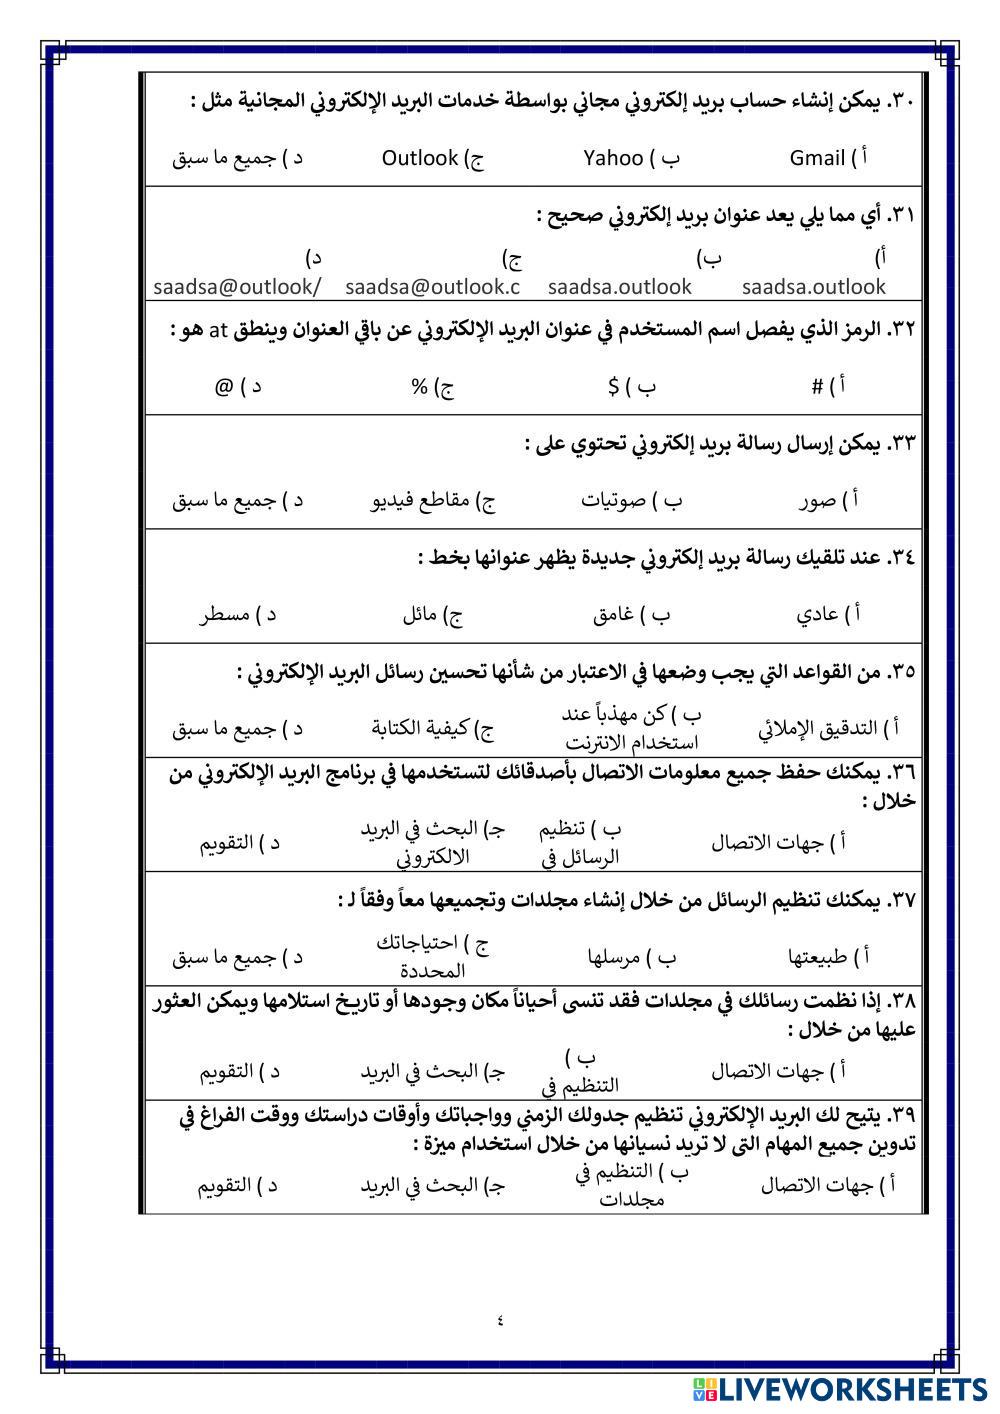 ٣٠. يمكن إنشاء حساب بريد إلكتروني مجاني بواسطة خدمات البريد الإلكتروني المجانية مثل :
أ ) Gmail ب ) Yahoo ج) Outlook د ) جميع ما سبق
٣١. أي مما يلي يعد عنوان بريد إلكتروني صحيح :
أ) ب) ج) د)
saadsa.outlook saadsa.outlook saadsa@outlook.c saadsa@outlook/
٣٢. الرمز الذي يفصل اسم المستخدم في عنوان البريد الإلكتروني عن باقي العنوان وينطق at هو :
أ ) # ب ) $ ج) % د ) @
٣٣. يمكن إرسال رسالة بريد إلكتروني تحتوي على :
أ ) صور ب ) صوتيات ج) مقاطع فيديو د ) جميع ما سبق
٣٤. عند تلقيك رسالة بريد إلكتروني جديدة يظهر عنوانها بخط :
أ ) عادي ب ) غامق ج) مائل د ) مسطر
٣٥. من القواعد التي يجب وضعها في الاعتبار من شأنها تحسين رسائل البريد الإلكتروني :
أ ) التدقيق الإملائي ب ) كن مهذباً عند ج) كيفية الكتابة د ) جميع ما سبق
استخدام الانترنت
٣٦. يمكنك حفظ جميع معلومات الاتصال بأصدقائك لتستخدمها في برنامج البريد الإلكتروني من
خلال :
أ ) جهات الاتصال ب ) تنظيم جـ) البحث في البريد د ) التقويم
الرسائل في الالكتروني
٣٧. يمكنك تنظيم الرسائل من خلال إنشاء مجلدات وتجميعها معاً وفقاً لـ :
أ ) طبيعتها ب ) مرسلها ج ) احتياجاتك د ) جميع ما سبق
المحددة
٣٨. إذا نظمت رسائلك في مجلدات فقد تنسى أحياناً مكان وجودها أو تاريخ استلامها ويمكن العثور
عليها من خلال :
أ ) جهات الاتصال ب ) جـ) البحث في البريد د ) التقويم
التنظيم في
٣٩. يتيح لك البريد الإلكتروني تنظيم جدولك الزمني وواجباتك وأوقات دراستك ووقت الفراغ في
تدوين جميع المهام التى لا تريد نسيانها من خلال استخدام ميزة :
أ ) جهات الاتصال ب ) التنظيم في جـ) البحث في البريد د ) التقويم
مجلدات
٤
LIVEWORKSHEETS